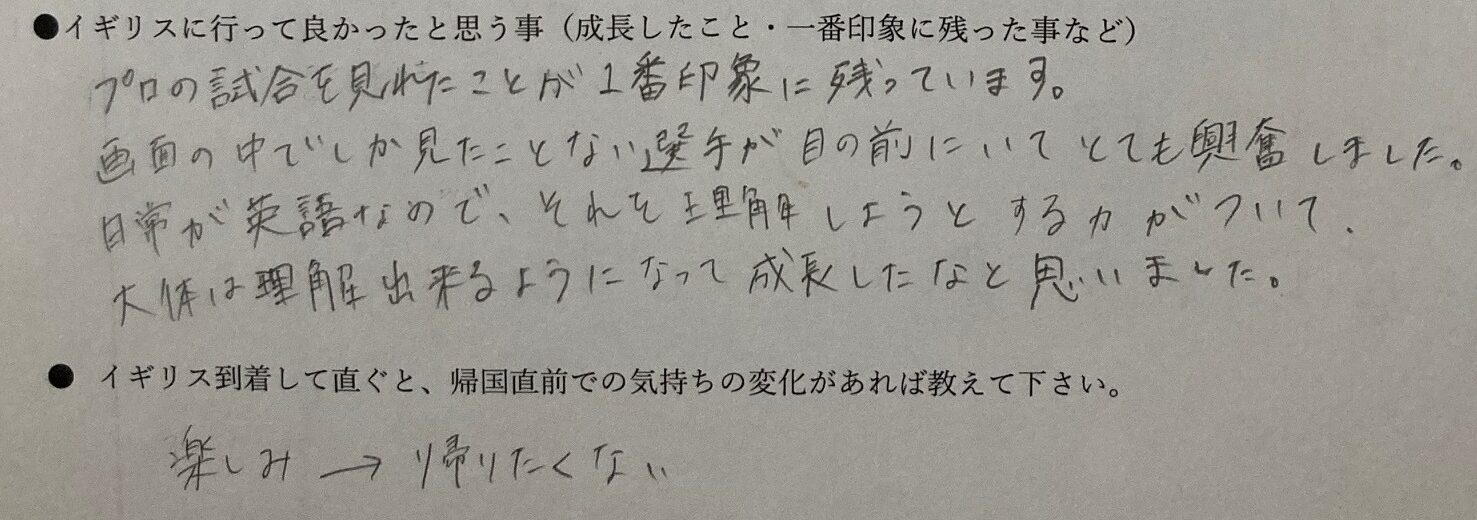 ●イギリスに行って良かったと思う事（成長したこと・一番印象に残った事など）
プロの試合を見れたことが1番印象に残っています。
画面の中でしか見たことない選手が目の前にいてとても興奮しました。
日常が英語なので、それを理解しようとする力がついて、
大体は理解出来るようになって成長したなと思いました。
● イギリス到着して直ぐと、帰国直前での気持ちの変化があれば教えて下さい。
楽しみ → 帰りたくない